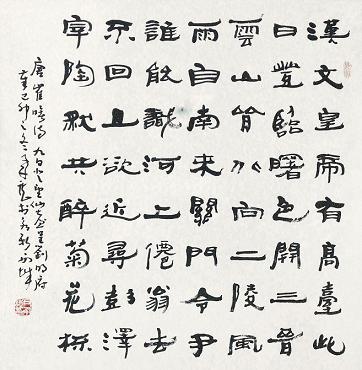 漢文皇帝有高臺此
日登臨曙色開三晉
雲山皆北向二陵風
雨自南來關門令尹
誰能識河上僊翁去
不回且欲近尋彭澤
宰陶然共醉菊花杯
唐崔曙詩九日登望仙台呈劉明府